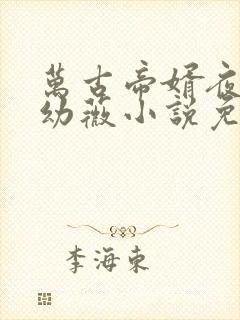 萬古帝婿夜
幼薇小説免
李海東